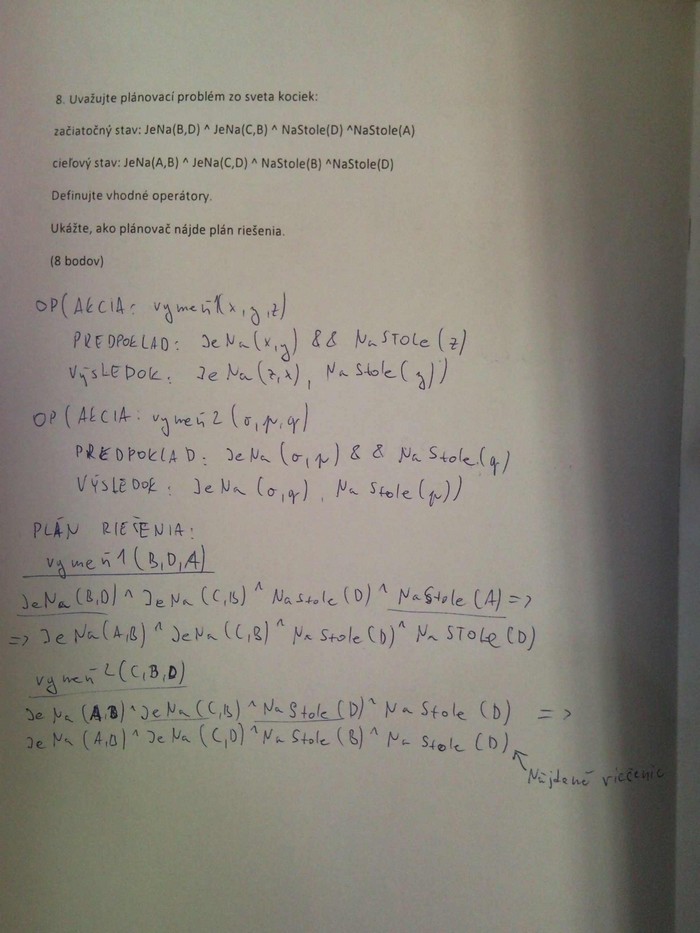 8. Uvažujte plánovací problém zo sveta kociek:
začiatočný stav: JeNa(B,D) ^ JeNa(C,B) ^ NaStole(D) ^NaStole(A)
cieľový stav: JeNa(A,B) ^ JeNa(C,D) ^ NaStole(B) ^NaStole(D)
Definujte vhodné operátory.
Ukážte, ako plánovač nájde plán riešenia.
(8 bodov)
OP(AKCIA: vymeň1(x,y,z)
PREDPOKLAD: JeNa(x,y) && NaSTOLe(z)
VÝSLEDOK: JeNa(z,x), NaStole(y))
OP(AKCIA: vymeň2(o,p,q)
PREDPOKLAD: JeNa(o,p) && NaStole(q)
VÝSLEDOK: JeNa(o,q), NaStole(p))
PLÁN RIEŠENIA:
vymeň1(B,D,A)
JeNa(B,D) ^ JeNa(C,B) ^ NaStole(D) ^ NaStole(A) =>
=> JeNa(A,B) ^ JeNa(C,B) ^ NaStole(D) ^ NaSTOLe(D)
vymeň2(C,B,D)
JeNa(A,B) ^ JeNa(C,B) ^ NaStole(D) ^ NaStole(D) =>
JeNa(A,B) ^ JeNa(C,D) ^ NaStole(B) ^ NaStole(D)
Nájdené riešenie